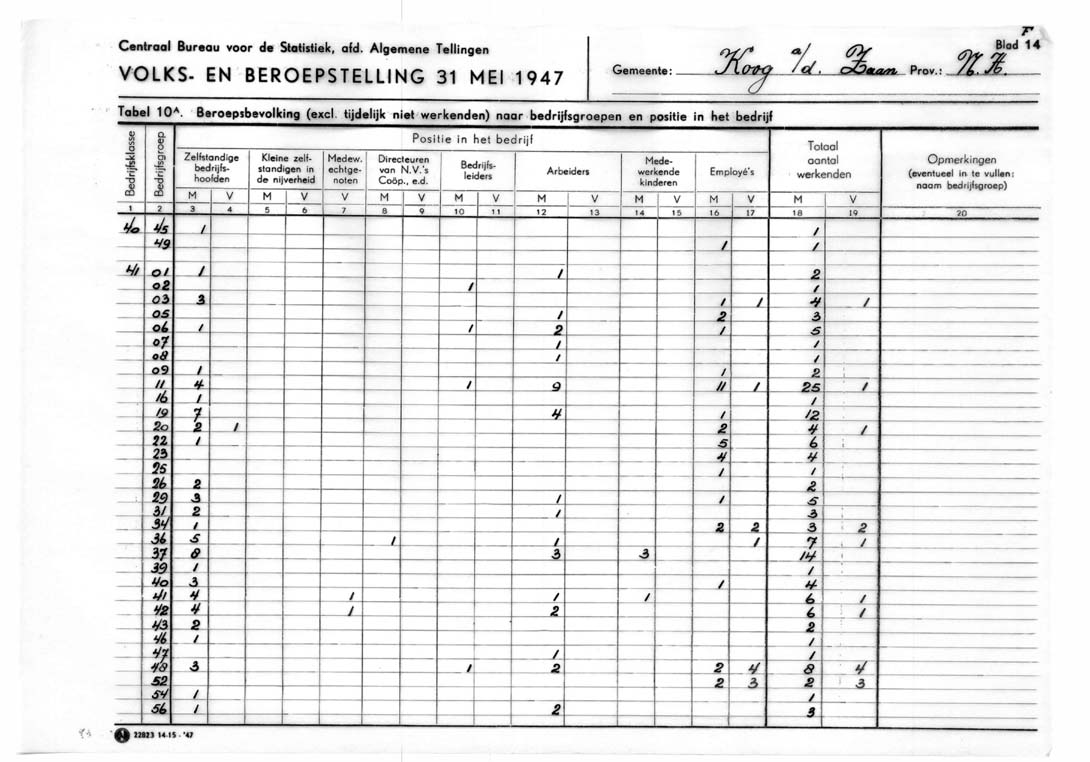 F
Blad 14
Centraal Bureau voor de Statistiek, afd. Algemene Tellingen
VOLKS- EN BEROEPSTELLING 31 MEI 1947
Gemeente: Koog a/d. Zaan Prov.: N.H.
Tabel 10A. Beroepsbevolking (excl. tijdelijk niet werkenden) naar bedrijfsgroepen en positie in het bedrijf
Bedrijfsklasse Bedrijfsgroep Positie in het bedrijf Totaal aantal werkenden Opmerkingen (eventueel in te vullen: naam bedrijfsgroep)
Zelfstandige bedrijfs-hoofden Kleine zelf-standigen in de nijverheid Medew. echtge-noten Directeuren van N.V.'s Coöp., e.d. Bedrijfs-leiders Arbeiders Mede-werkende kinderen Employé's
M V M V V M V M V M V M V M V M V
1 2 3 4 5 6 7 8 9 10 11 12 13 14 15 16 17 18 19 20
40 45 1 1
49 1 1
41 01 1 1 2
02 1 1
03 3 1 1 4 1
05 1 2 3
06 1 1 2 1 5
07 1 1
08 1 1
09 1 1 2
11 4 1 9 11 1 25 1
16 1 1
19 7 4 1 12
20 2 1 2 4 1
22 1 5 6
23 4 4
25 1 1
26 2 2
29 3 1 1 5
31 2 1 3
34 1 2 2 3 2
36 5 1 1 1 7 1
37 8 3 3 14
39 1 1
40 3 1 4
41 4 1 1 1 6 1
42 4 1 2 6 1
43 2 2
46 1 1
47 1 1
48 3 1 2 2 4 8 4
52 2 3 2 3
54 1 1
56 1 2 3
22823 14-15-'47